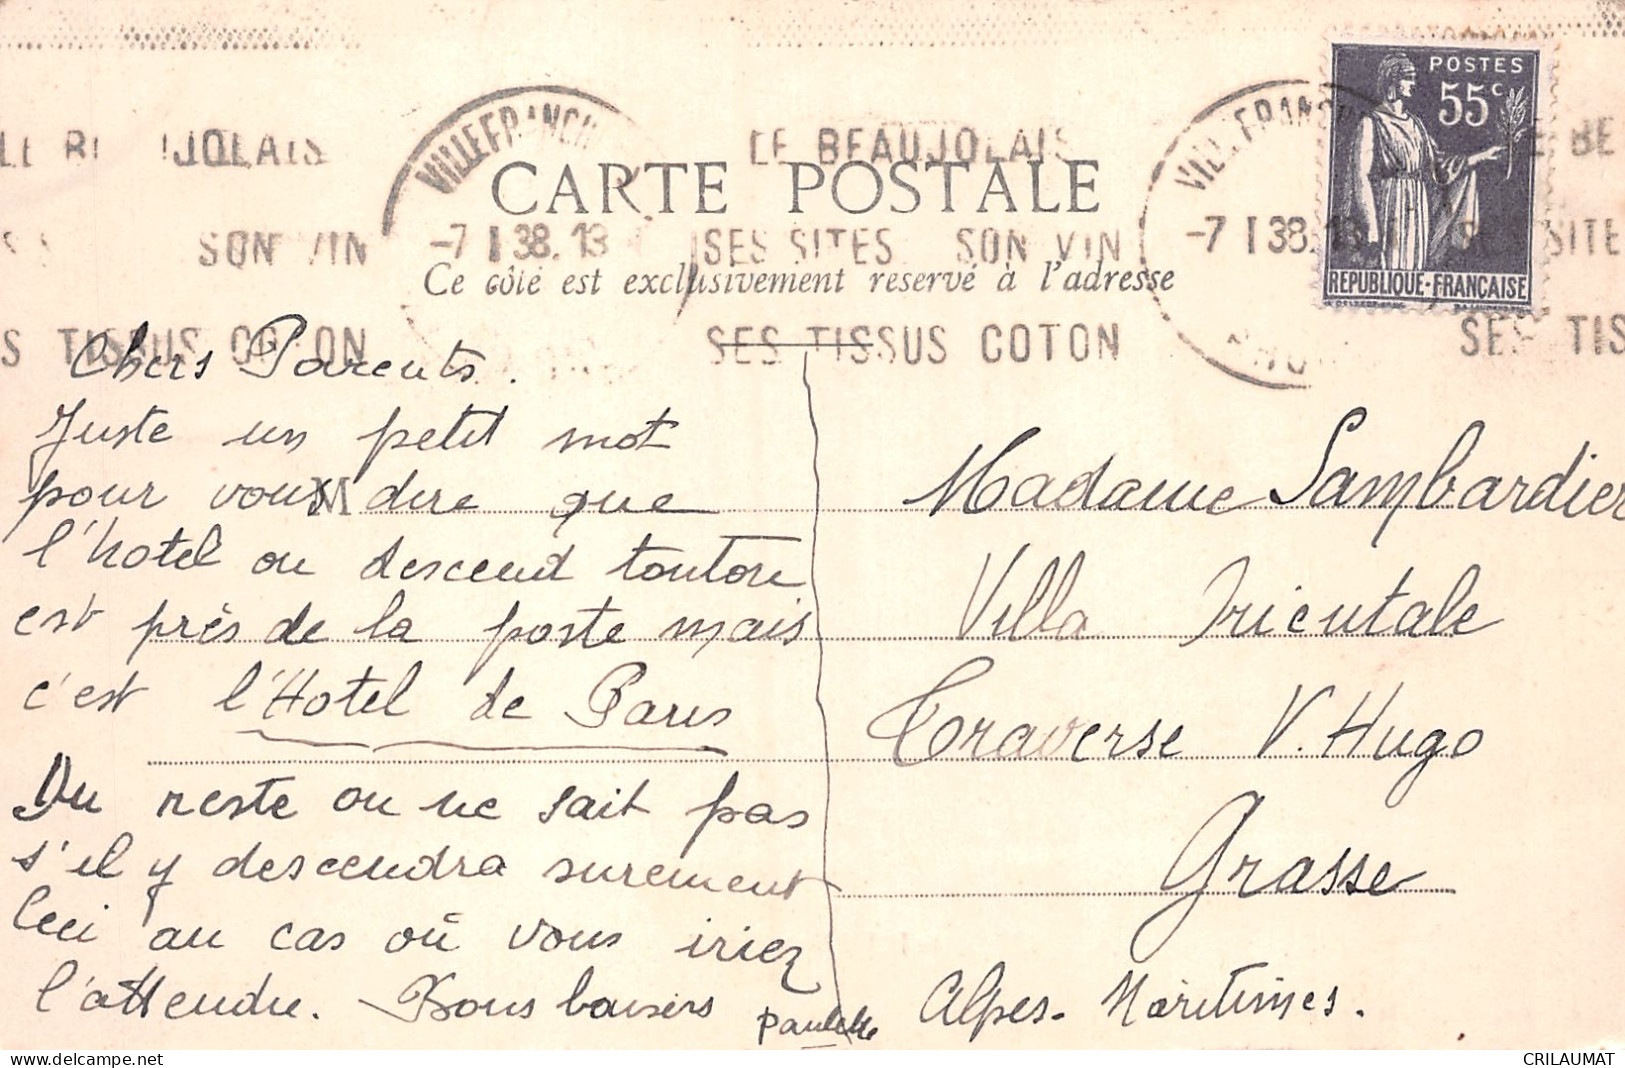 POSTES
55c
REPUBLIQUE-FRANÇAISE
LE BEAUJOLAIS
SES SITES SON VIN
SES TISSUS COTON
VILLEFRANCH
-7 I 38.13
VILLEFRANCH
-7 I 38.13
SON VIN
TISSUS COTON
CARTE POSTALE
Ce côté est exclusivement reservé à l'adresse
Chers Parents.
Juste un petit mot
pour vous dire que
l'hotel ou descend tonton
est près de la poste mais
c'est l'Hotel de Paris
Du reste on ne sait pas
s'il y descendra surement
Ceci au cas où vous iriez
l'attendre. Bons baisers
Paulette
Madame Lambardier
Villa Orientale
Traverse V. Hugo
Grasse
Alpes-Maritimes.
CRILAUMAT